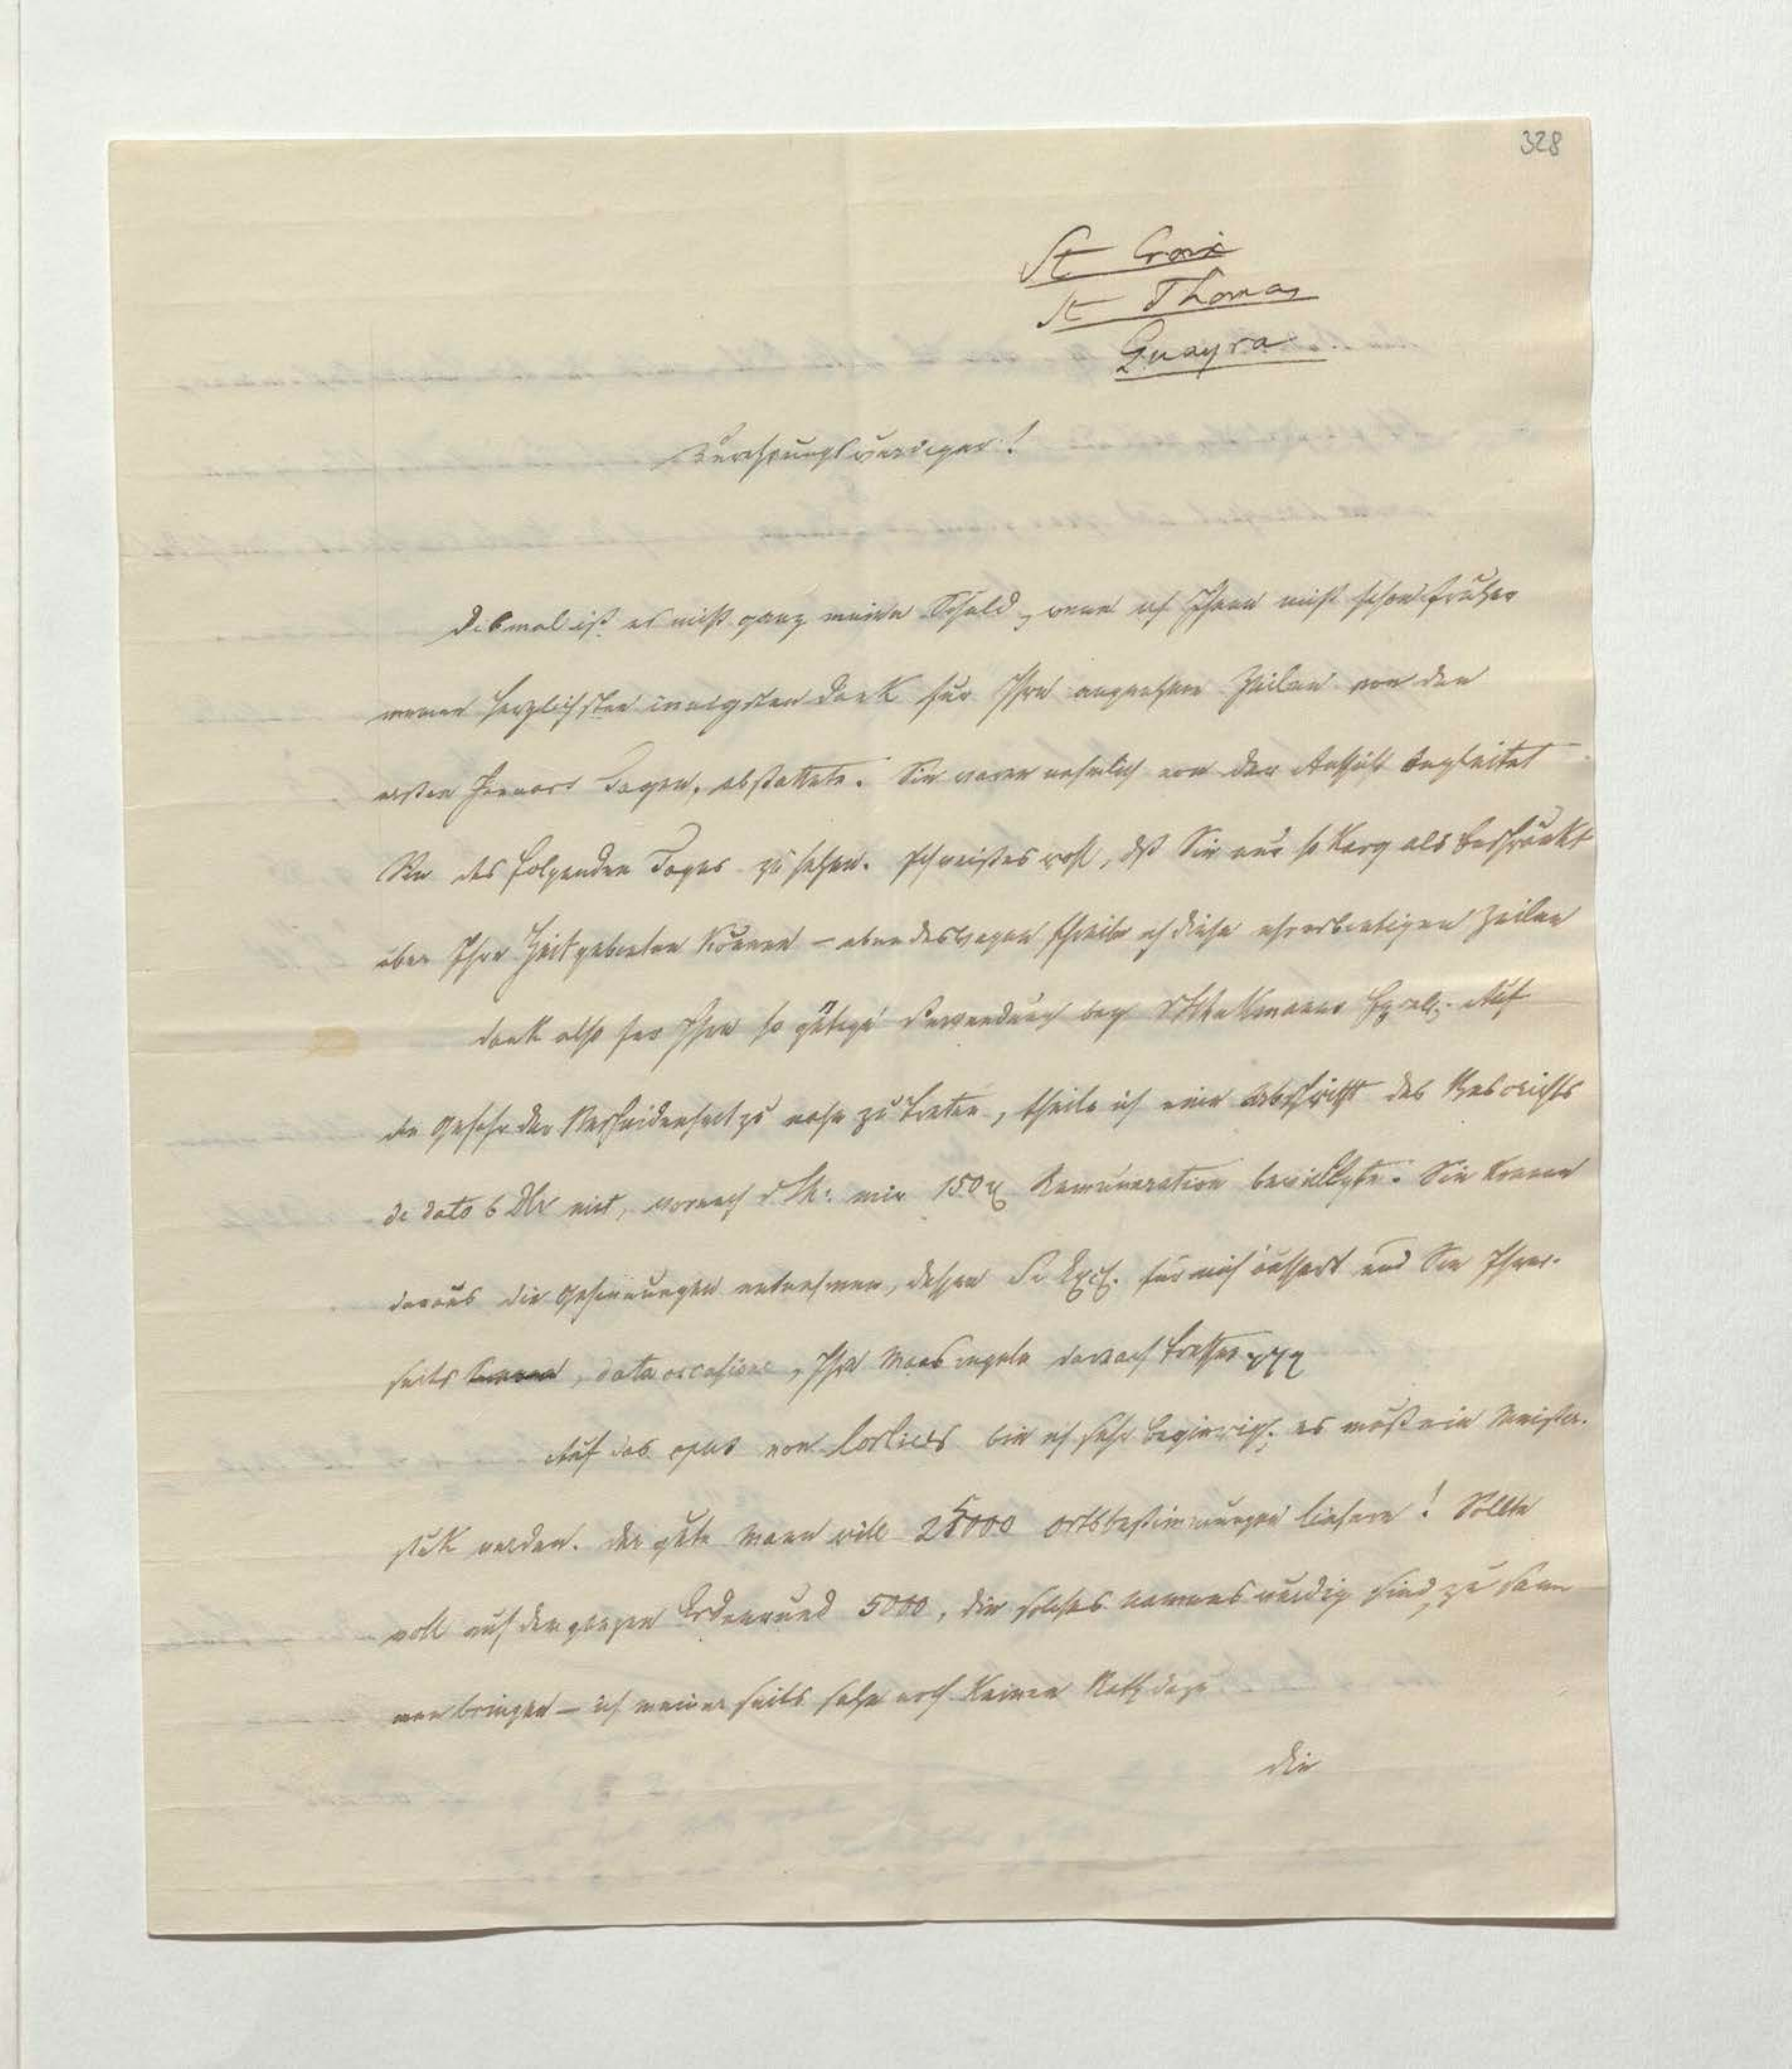 328
St Croix
St Thomas
Guayra
Verehrungswürdiger!
Diesmal ist es nicht ganz meine Schuld, wenn ich Ihnen nicht schon früher
meinen herzlichsten innigsten Dank für Ihre angenehmen Zeilen von den
ersten Januars Tagen, abstattete. Sie waren nehmlich von der Aussicht begleitet
Sie des folgenden Tages zu sehen. Ich weiß es wohl, daß Sie nur so karg als beschränkt
über Ihre Zeit gebieten können – eben deswegen schreibe ich diese ehrerbietigen Zeilen
Dank also für Ihre so gütige Verwendung bey Excell. Auf
die Gefahr der Bescheidenheit zu nahe zu treten, theile ich eine Abschrift des
de dato 6 mit, wonach mir 150 Remuneration bewilligte. Sie können
daraus die Gesinnungen entnehmen, dessen Se Exc. für mich äussert und Sie Ihrer-
seits, data occasione, Ihre Maasregeln darnach treffen
Auf das opus von bin ich sehr begierig; es muß ein Meister-
stük werden. Der gute Mann will 25000 Ortsbestimmungen liefern! Sollte
er wohl auf dem ganzen Erdenrund 5000, die solches Namens würdig sind, zu sam
men bringen – ich meiner seits sehe noch keinen Rath dazu
Die